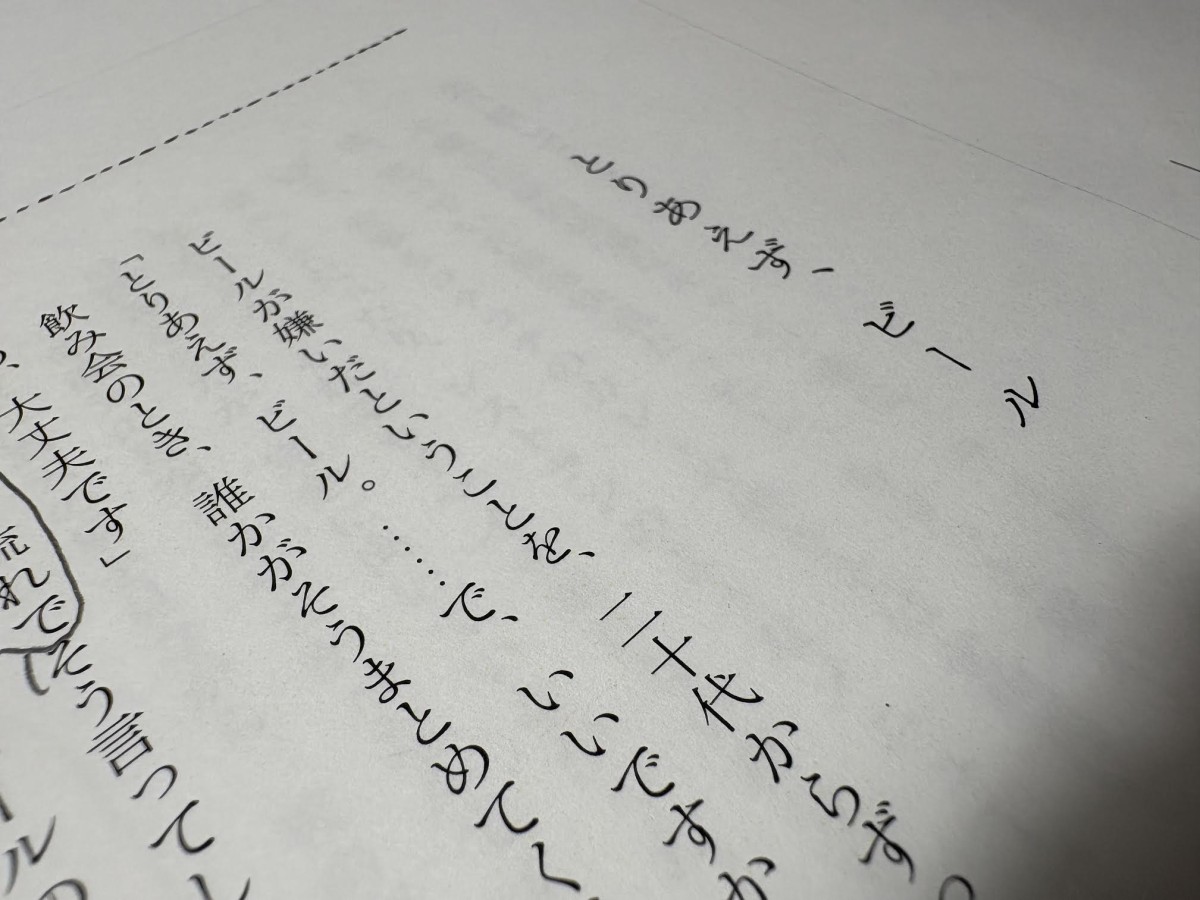 とりあえず、ビール
ビールが嫌いだということを、二十代からずっ
「とりあえず、ビール。……で、いいですか
飲み会のとき、誰かがそうまとめてく
、大丈夫です」
流れでそう言ってし
ルの